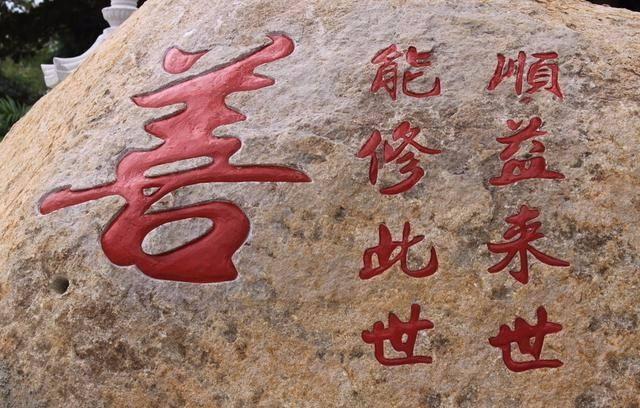 善
能修此世
順益来世